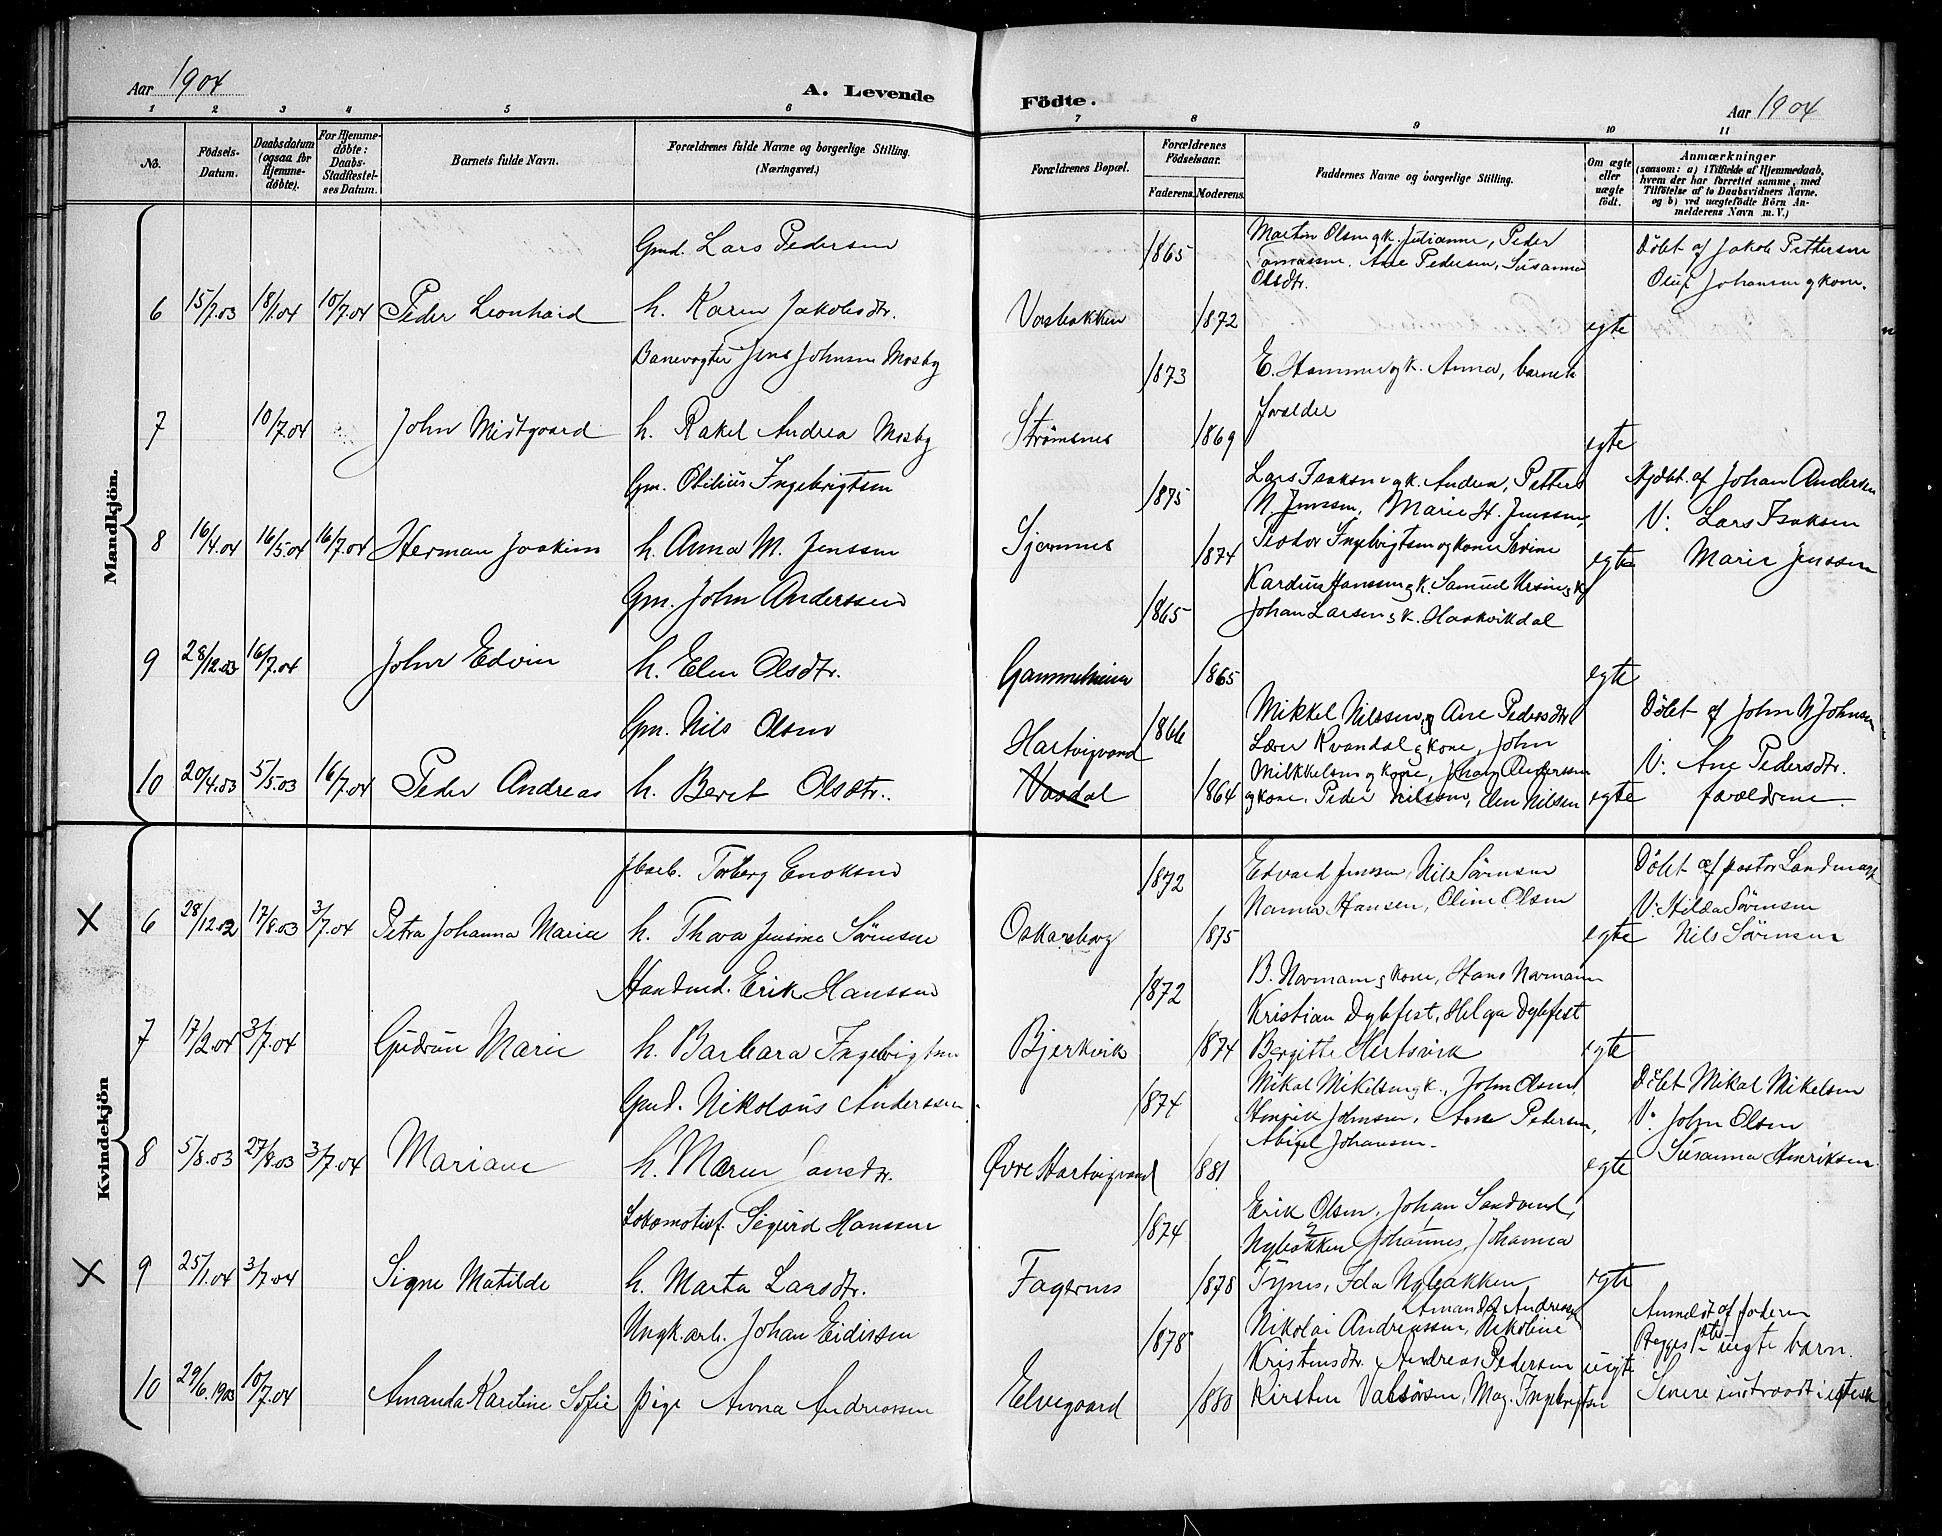 Aar 1904
A. Levende
Födte.
Aar 1904
1 2 3 4 5 6 7 8 9 10 11
No.
Födsels-Datum.
Daabsdatum (ogsaa for Hjemme-döbte).
For Hjemme-döbte: Daabs-Stadfæstel-ses Datum.
Barnets fulde Navn.
Forældrenes fulde Navne og borgerlige Stilling. (Næringsvei.)
Forældrenes Bopæl.
Forældrenes Födselsaar.
Faderens. Moderens.
Faddernes Navne og borgerlige Stilling.
Om ægte eller uægte födt.
Anmærkninger
(saasom: a) i Tilfælde af Hjemmedaab, hvem der har forrettet samme, med Tilföielse af to Daabsvidners Navne. og b) ved uægtefödte Börn An-melderens Navn m. V.)
Mandkjön.
Gmd. Lars Pedersen
1865
Martin Olsen g k. Julianne, Peder
Tomassen, Ane Pedersen, Susanna
Olsdtr.
Döbt af Jakob Pettersen
Oluf Johansen g kone.
6 15/7.03 18/1.04 10/7.04 Peder Leonhard h. Karen Jakobsdtr. Vasbakken 1872 egte
Banevogter Jens Johnsen Mosby
1873
E. Hammer g k. Anna, barnets
forældre
7 10/7.04 John Midtgaard h. Rakel Andrea Mosby Strømsnes 1869 egte
Gm. Otilius Ingebrigtsen
1875
Lars Isaksen g k. Andrea, Petter
N. Jenssen, Marie H. Jenssen,
Hjdbt. af Johan Andersen
V: Lars Isaksen
8 16/4.04 16/5.04 16/7.04 Herman Joakim h. Anna M. Jenssen 1874 Teodor Ingebrigtsen og kone Serine egte Marie Jenssen
Gm. John Anderssen
1865
Hanssen g k. Samuel
Johan Larsen g k. Haakvikdal
9 28/12.03 16/7.04 John Edvin h. Elen Olsdtr. Gammelheim 1865 egte
Gm. Nils Olsen
Hartvigvand
1866
Mikkel Nilssen g Ane Pedersdtr
Lærer Kvandal g kone, John
Döbt af John Johnsen
V: Ane Pedersdtr.
10 20/4.03 5/5.03 16/7.04 Peder Andreas h. Beret Olsdtr. Vasdal 1864
Mikkelsen g kone, Andersen
g kone. Peder Nilssen, Elen Nilsen egte forældrene.
Kvindekjön
Jbarb. Torberg Enoksen
1872
Edvard Jenssen, Nils Sørensen
Nanna Hansen, Oline Olsen
Döbt af pastor Landmark
V: Hilda Sørensen
X 6 28/12.02 17/8.03 3/7.04 Petra Johanna Marie h. Thora Jensine Sørensen Oskarsborg 1875 egte Nils Sørensen
Haandv. Erik Hanssen
1872
B. Normann g kone, Hans Normann
Kristian Dybfest, Helga Dybfest
7 17/2.04 3/7.04 Gudrun Marie h. Barbara Ingebrigtsen Bjerkvik 1874 Bergitte Hertsvik egte
Gmd. Nikolaus Anderssen.
1874
Mikal Mikelsen g k., John Olsen,
Henrik Johnsen, Ane Pedersen,
Abigel Johansen.
Döbt Mikal Mikelsen
V: John Olsen
Susanna Henriksen.
8 5/8.03 27/8.03 3/7.04 Mariane h. Maren Øvre Hartvigvand 1881 egte
Lokomotivf. Sigurd Hanssen
1874
Erik Olsen, Johan Sandvend,
Nybakken Johannes, Johanna
X 9 25/1.04 3/7.04 Signe Matilde h. Marta Larsdtr. Fagernes 1878 Tynes, Ida Nybakken egte
Ungk. arb. Johan Eidissen
1878
Amanda Andreas
Nikolai Andreassen, Nikoline
Kristensdtr. Andreas Pedersen uegte
Anmeldt af faderen
Begges 1ste uegte barn.
10 29/6.1903 10/7.04 Amanda Karoline Sofie pige Anna Andreassen Elvegaard 1880 Kirsten Valsøsen, Mag. Ingebrigtsen Senere indtraadt i egtesk